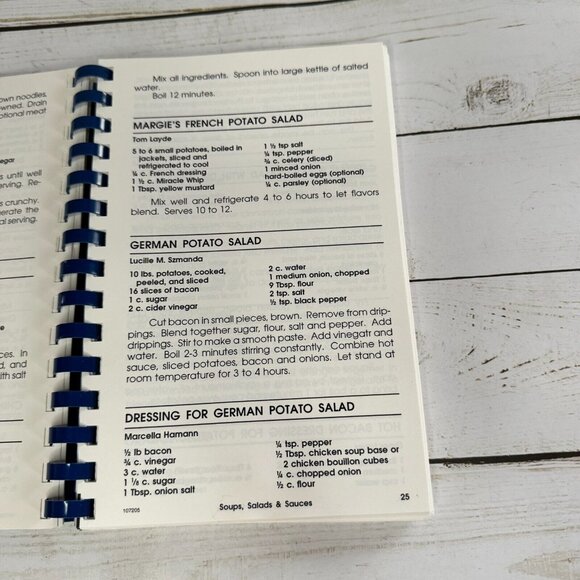 own noodles,
owned. Drain
otional meat
egar
s until well
erving. Re-
s crunchy.
gerate the
al serving.
ces. In
d, and
ith salt
Mix all ingredients. Spoon into large kettle of salted
water.
Boil 12 minutes.
MARGIE'S FRENCH POTATO SALAD
Tom Layde
5 to 6 small potatoes, boiled in
jackets, sliced and
refrigerated to cool
¼ c. French dressing
1 ½ c. Miracle Whip
1 Tbsp. yellow mustard
1 ½ tsp salt
¼ tsp. pepper
¾ c. celery (diced)
1 minced onion
hard-boiled eggs (optional)
¼ c. parsley (optional)
Mix well and refrigerate 4 to 6 hours to let flavors
blend. Serves 10 to 12.
GERMAN POTATO SALAD
Lucille M. Szmanda
10 lbs. potatoes, cooked,
peeled, and sliced
16 slices of bacon
1 c. sugar
2 c. cider vinegar
2 c. water
1 medium onion, chopped
9 Tbsp. flour
2 tsp. salt
½ tsp. black pepper
Cut bacon in small pieces, brown. Remove from drip-
pings. Blend together sugar, flour, salt and pepper. Add
drippings. Stir to make a smooth paste. Add vinegatr and
water. Boil 2-3 minutes stirring constantly. Combine hot
sauce, sliced potatoes, bacon and onions. Let stand at
room temperature for 3 to 4 hours.
DRESSING FOR GERMAN POTATO SALAD
Marcella Hamann
½ lb bacon
¾ c. vinegar
3 c. water
1 ⅛ c. sugar
1 Tbsp. onion salt
¼ tsp. pepper
½ Tbsp. chicken soup base or
2 chicken bouillon cubes
¼ c. chopped onion
½ c. flour
107205
Soups, Salads & Sauces
25